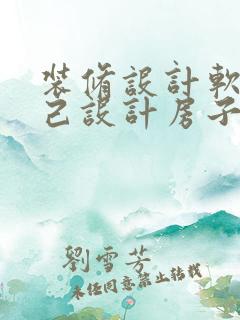 裝修設計軟
己設計房子
劉雪芳
未經同意禁止轉載